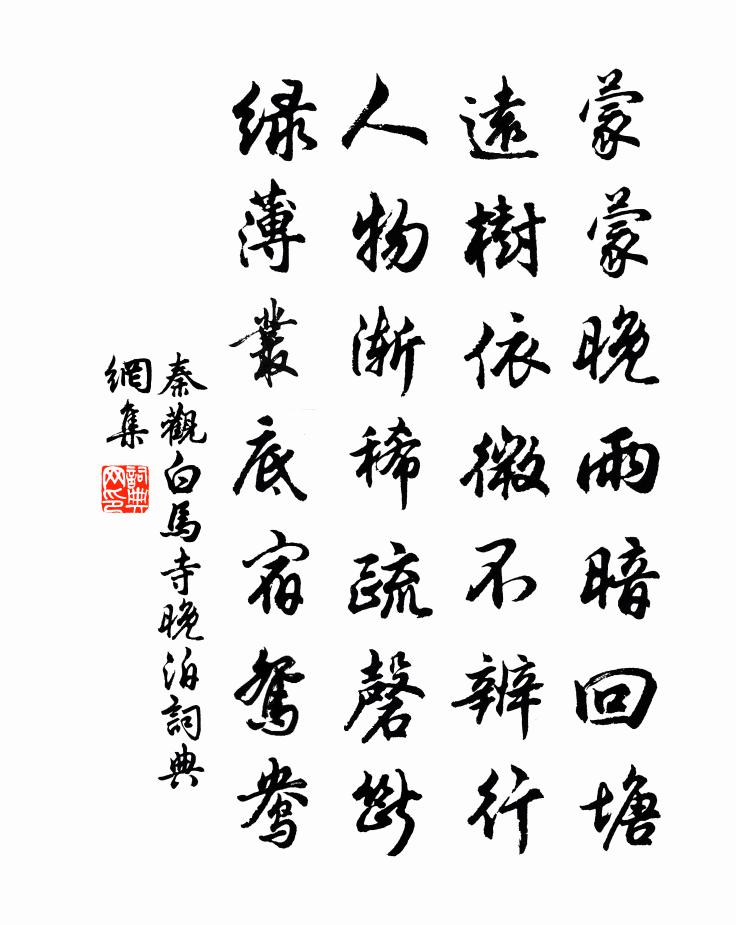 蒙蒙晚雨暗回塘
遠樹依微不辨行
人物漸稀疏磬斷
綠薄叢底宿鴛鴦
秦觀白馬寺晚泊詞典
網集
詞典網印